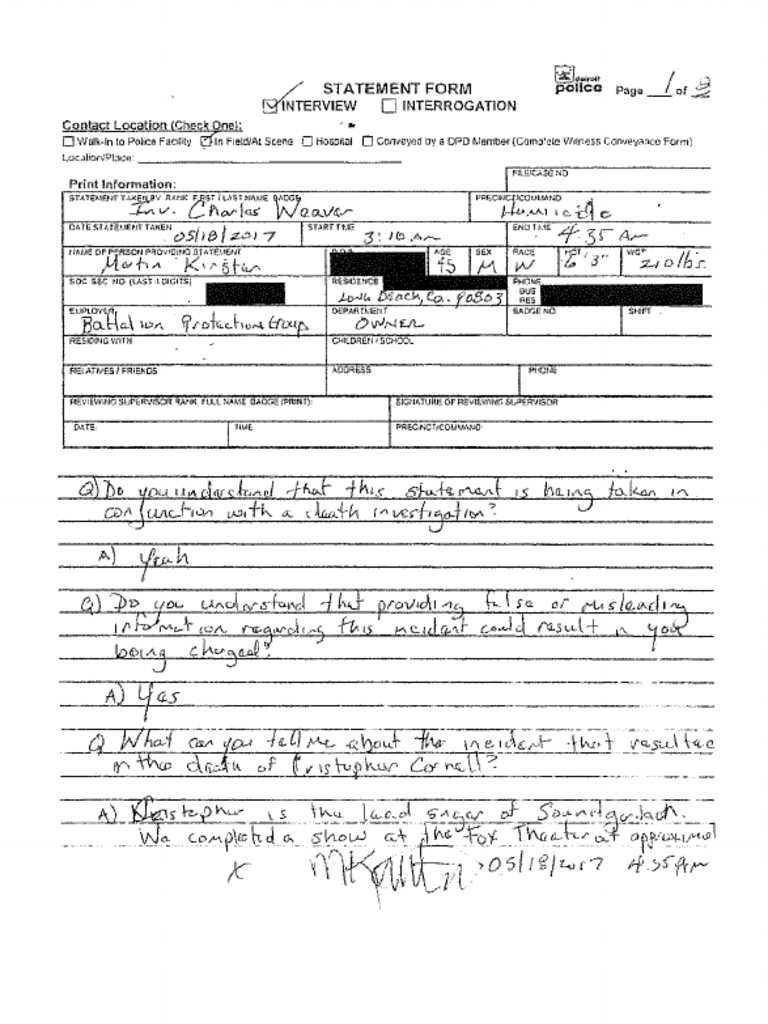 STATEMENT FORM
detroit police Page 1 of
☑ INTERVIEW ☐ INTERROGATION
Contact Location (Check One):
☐ Walk-In to Police Facility ☑ In Field/At Scene ☐ Hospital ☐ Conveyed by a DPD Member (Complete Witness Conveyance Form)
Location/Place:
FILE/CASE NO
Print Information:
STATEMENT TAKEN BY RANK FIRST / LAST NAME BADGE PRECINCT/COMMAND
Inv. Charles Weaver Homicide
DATE STATEMENT TAKEN START TIME END TIME
05/18/2017 3:10 Am 4:35 Am
NAME OF PERSON PROVIDING STATEMENT D.O.B. AGE SEX RACE HGT WGT
Martin Kirsten 45 M W 6'3" 210 lbs.
SOC SEC NO (LAST 4 DIGITS) RESIDENCE PHONE
Long Beach, Ca. 90803 BUS
RES
EMPLOYER DEPARTMENT BADGE NO. SHIFT
Battalion Protections Group OWNER
RESIDING WITH CHILDREN / SCHOOL
RELATIVES / FRIENDS ADDRESS PHONE
REVIEWING SUPERVISOR RANK FULL NAME BADGE (PRINT): SIGNATURE OF REVIEWING SUPERVISOR
DATE: TIME PRECINCT/COMMAND
Q) Do you understand that this statement is being taken in
conjunction with a death investigation?
A) Yeah
Q) Do you understand that providing false or misleading
information regarding this incident could result in you
being charged?
A) Yes
Q What can you tell me about the incident that resulted
in the death of Cristopher Cornell?
A) Kristopher is the lead singer of Soundgarden.
We completed a show at the Fox Theater at approximal
X 05/18/2017 4:35 AM